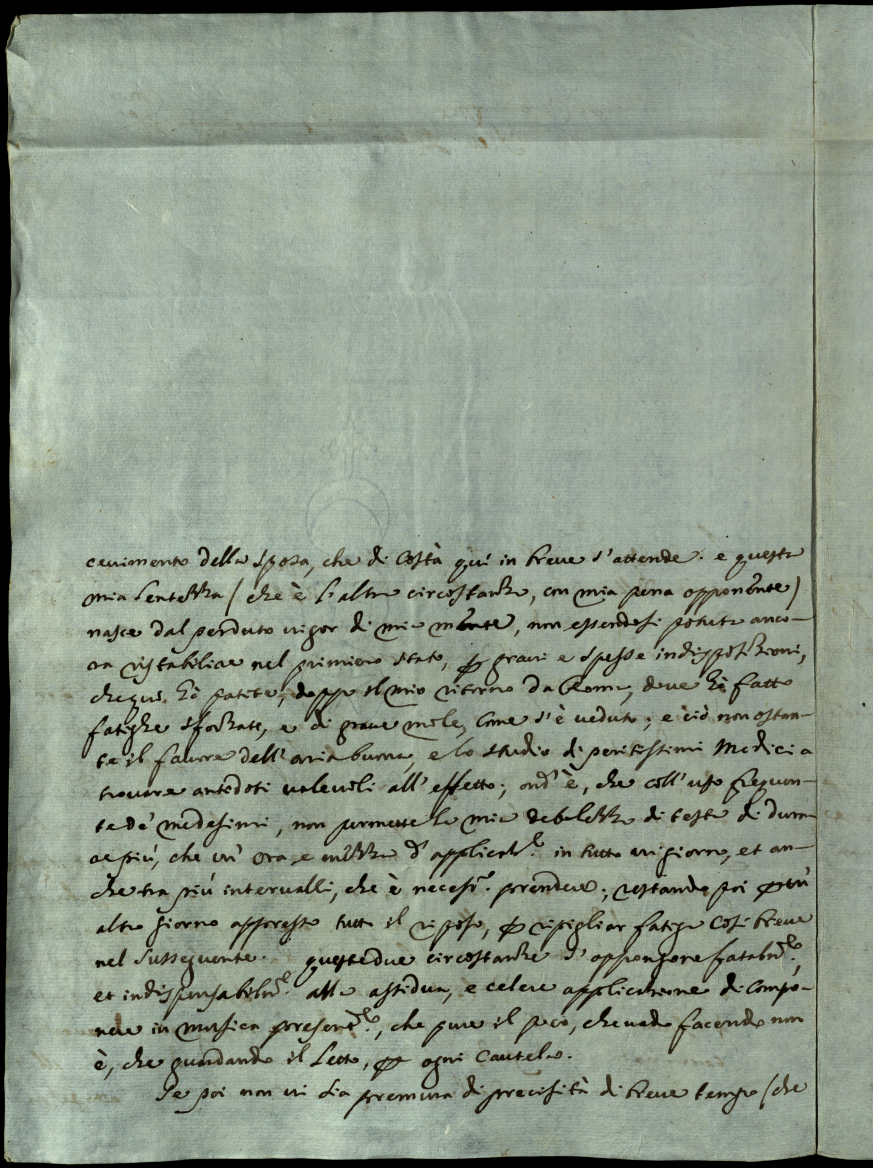 cevimento della sposa, che di Costà qui in breve s'attende. e questa
mia lentezza (che è l'altra circostanza, con mia pena opponente)
nasce dal perduto vigor di mia mente, non essendosi potuta anco-
ra ristabilire nel primiero stato, p gravi e spesse indisposizioni,
che qui hò patite, doppo il mio ritorno da Roma, dove hò fatto
fatighe sforzate, e di grave mole, Come s'è veduto; e ciò non ostan-
te il favore dell'aria buona, e lo studio di peritissimi Medici a
trovare antidoti valevoli all'effetto; ond'è, che coll'uso frequen-
te de' medesimi, non permette la mia debolezza di testa di dura-
re più, che un'ora, e mezza d'applicaz.e in tutto un giorno, et an-
che tra più intervalli, che è necess.o prendere; restando poi p un
altro giorno appresso tutto il riposo, p ripigliar fatiga così breve
nel susseguente. queste due circostanze s'oppongono fatalm.te
et indispensabilm.te alla assidua, e celere applicazione di compo-
nere in musica presentem.te, che pure il poco, che vado facendo non
è, che guardando il Letto, p ogni Cautela.
Se poi non vi sia premura di precisità di breve tempo (che